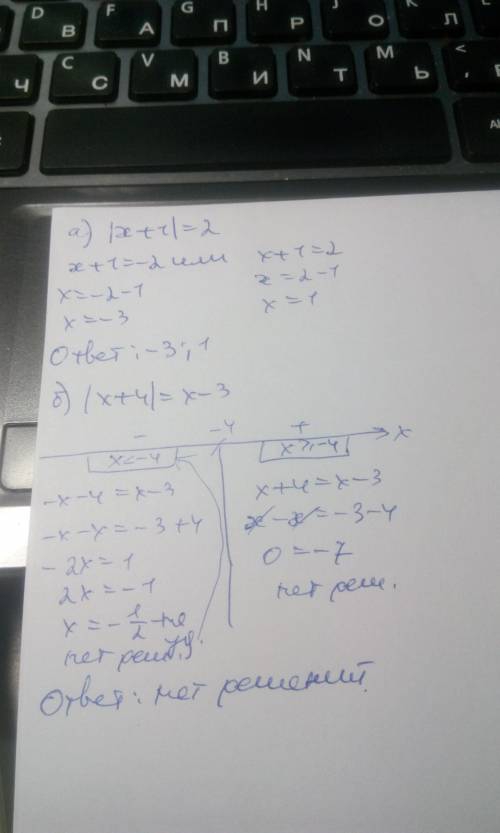 D В F А G П H Р J О K Л L
Ч C С V М B И N Т M Ь < ,
Al
а) |x+1|=2
x+1=-2 или x+1=2
x=-2-1 x=2-1
x=-3 x=1
Ответ: -3; 1
б) |x+4|=x-3
- -4 + x
x<-4 x≥-4
-x-4=x-3 x+4=x-3
-x-x=-3+4 x-x=-3-4
-2x=1 0=-7
2x=-1 нет реш.
x=-1/2 - не уд.
нет реш.
Ответ: нет решений.